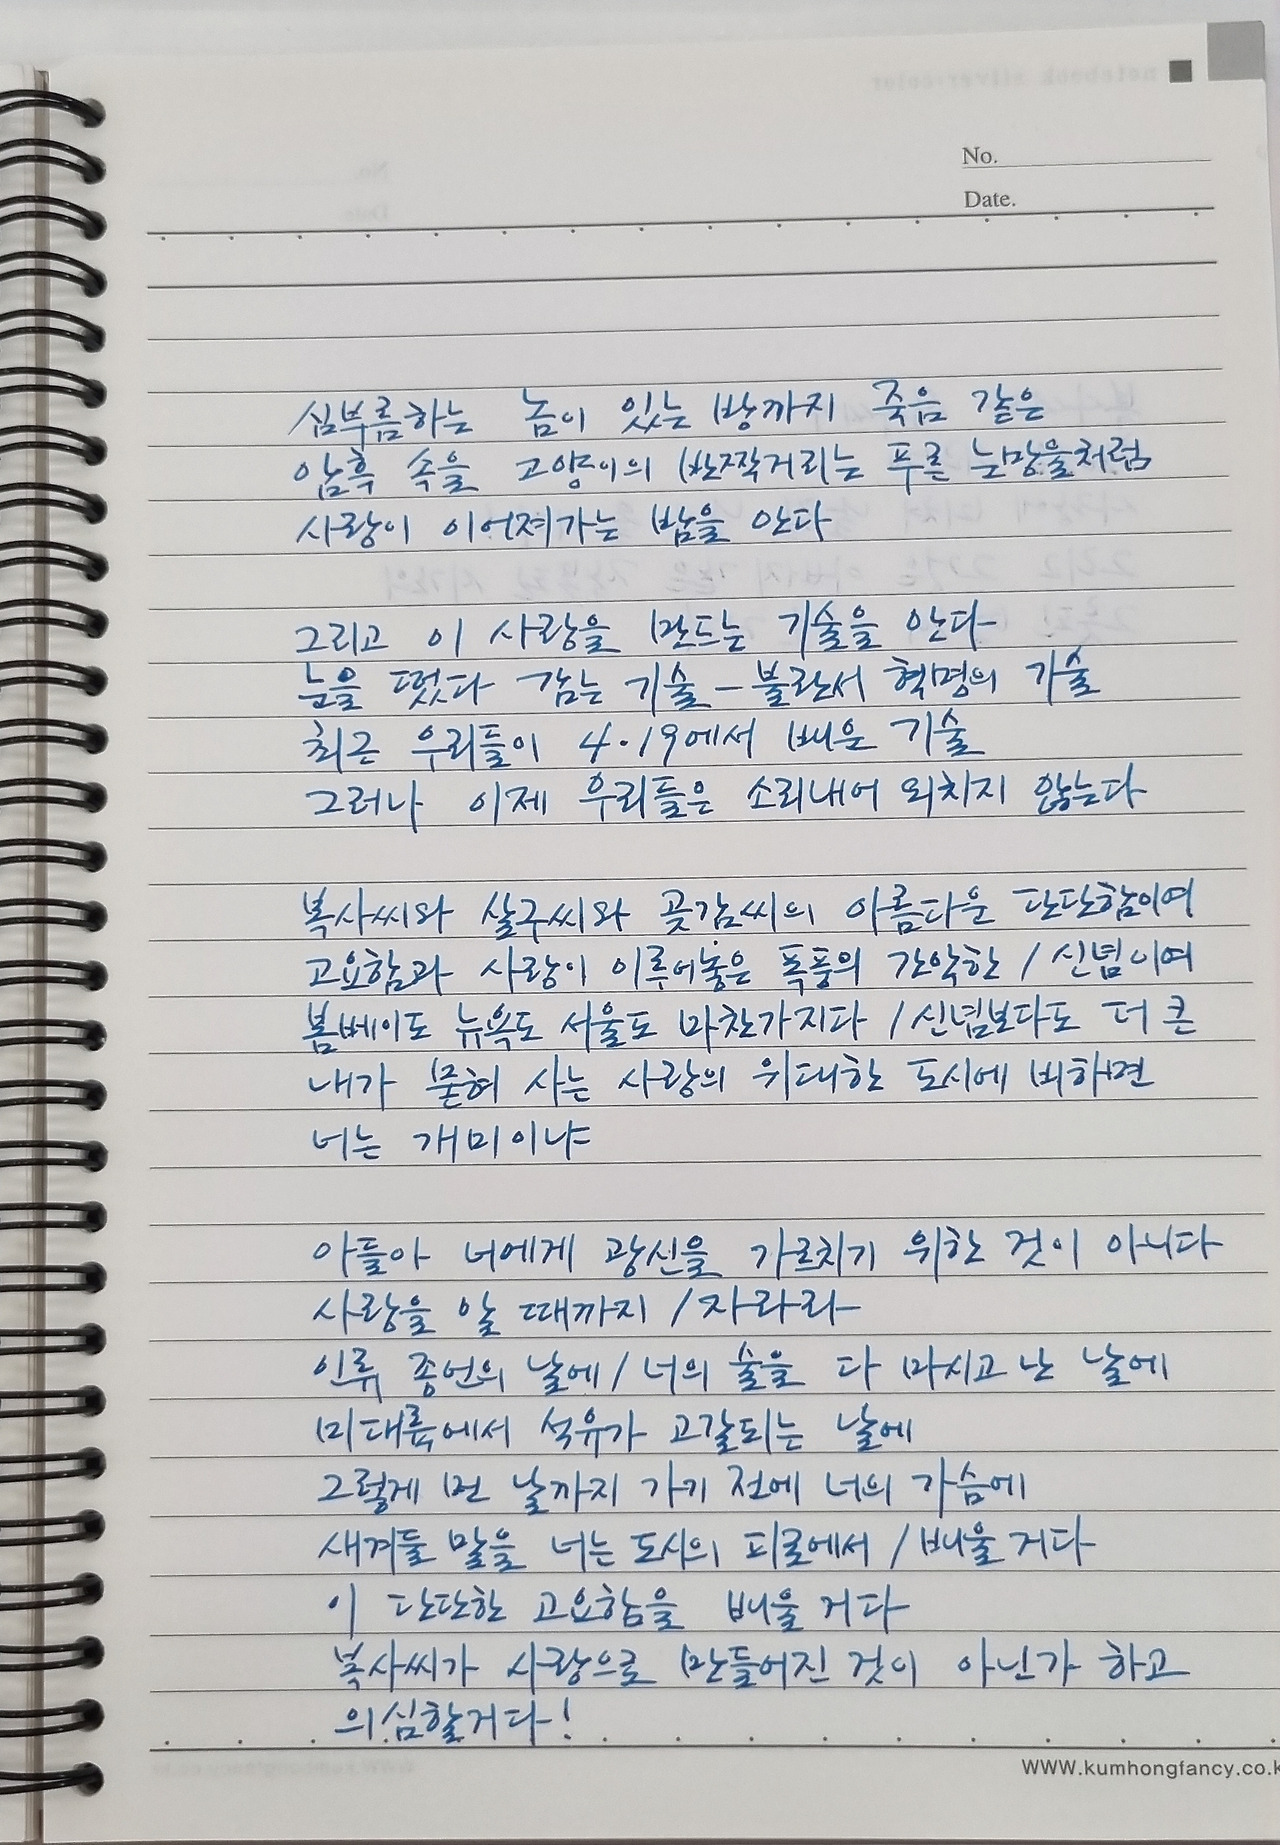 No.
Date.
심부름하는 놈이 있는 방까지 죽음 같은
암흑 속을 고양이의 반짝거리는 푸른 눈망울처럼
사랑이 이어져가는 밤을 안다
그리고 이 사랑을 만드는 기술을 안다
눈을 떴다 감는 기술 - 불란서 혁명의 기술
최근 우리들이 4.19에서 배운 기술
그러나 이제 우리들은 소리내어 외치지 않는다
복사씨와 살구씨와 곶감씨의 아름다운 단단함이여
고요함과 사랑이 이루어놓은 폭풍의 간악한 / 신념이여
봄베이도 뉴욕도 서울도 마찬가지다 / 신념보다도 더 큰
내가 묻혀 사는 사랑의 위대한 도시에 비하면
너는 개미이냐
아들아 너에게 광신을 가르치기 위한 것이 아니다
사랑을 알 때까지 / 자라라
인류 종언의 날에 / 너의 술을 다 마시고 난 날에
미대륙에서 석유가 고갈되는 날에
그렇게 먼 날까지 가기 전에 너의 가슴에
새겨둘 말을 너는 도시의 피로에서 / 배울 거다
이 단단한 고요함을 배울 거다
복사씨가 사랑으로 만들어진 것이 아닌가 하고
의심할거다!
WWW.kumhongfancy.co.k